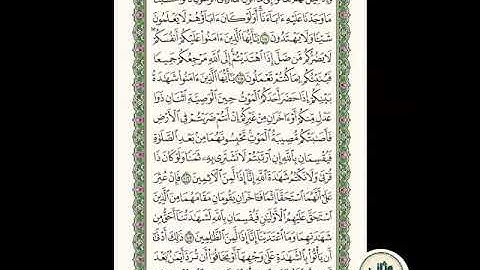 مَا وَجَدْنَا عَلَيْهِ ءَابَآءَنَآ أَوَلَوْ كَانَ ءَابَآؤُهُمْ لَا يَعْلَمُونَ
شَيْـًٔا وَلَا يَهْتَدُونَ ١٠٤ يَـٰٓأَيُّهَا ٱلَّذِينَ ءَامَنُوا۟ عَلَيْكُمْ أَنفُسَكُمْ
لَا يَضُرُّكُم مَّن ضَلَّ إِذَا ٱهْتَدَيْتُمْ إِلَى ٱللَّهِ مَرْجِعُكُمْ جَمِيعًا
فَيُنَبِّئُكُم بِمَا كُنتُمْ تَعْمَلُونَ ١٠٥ يَـٰٓأَيُّهَا ٱلَّذِينَ ءَامَنُوا۟ شَهَـٰدَةُ
بَيْنِكُمْ إِذَا حَضَرَ أَحَدَكُمُ ٱلْمَوْتُ حِينَ ٱلْوَصِيَّةِ ٱثْنَانِ ذَوَا
عَدْلٍ مِّنكُمْ أَوْ ءَاخَرَانِ مِنْ غَيْرِكُمْ إِنْ أَنتُمْ ضَرَبْتُمْ فِى ٱلْأَرْضِ
فَأَصَـٰبَتْكُم مُّصِيبَةُ ٱلْمَوْتِ تَحْبِسُونَهُمَا مِنۢ بَعْدِ ٱلصَّلَوٰةِ
فَيُقْسِمَانِ بِٱللَّهِ إِنِ ٱرْتَبْتُمْ لَا نَشْتَرِى بِهِۦ ثَمَنًا وَلَوْ كَانَ ذَا
قُرْبَىٰ وَلَا نَكْتُمُ شَهَـٰدَةَ ٱللَّهِ إِنَّآ إِذًا لَّمِنَ ٱلْـَٔاثِمِينَ ١٠٦ فَإِنْ عُثِرَ
عَلَىٰٓ أَنَّهُمَا ٱسْتَحَقَّآ إِثْمًا فَـَٔاخَرَانِ يَقُومَانِ مَقَامَهُمَا مِنَ ٱلَّذِينَ
ٱسْتَحَقَّ عَلَيْهِمُ ٱلْأَوْلَيَـٰنِ فَيُقْسِمَانِ بِٱللَّهِ لَشَهَـٰدَتُنَآ أَحَقُّ مِن
شَهَـٰدَتِهِمَا وَمَا ٱعْتَدَيْنَآ إِنَّآ إِذًا لَّمِنَ ٱلظَّـٰلِمِينَ ١٠٧ ذَٰلِكَ أَدْنَىٰٓ
أَن يَأْتُوا۟ بِٱلشَّهَـٰدَةِ عَلَىٰ وَجْهِهَآ أَوْ يَخَافُوٓا۟ أَن تُرَدَّ أَيْمَـٰنٌۢ بَعْدَ